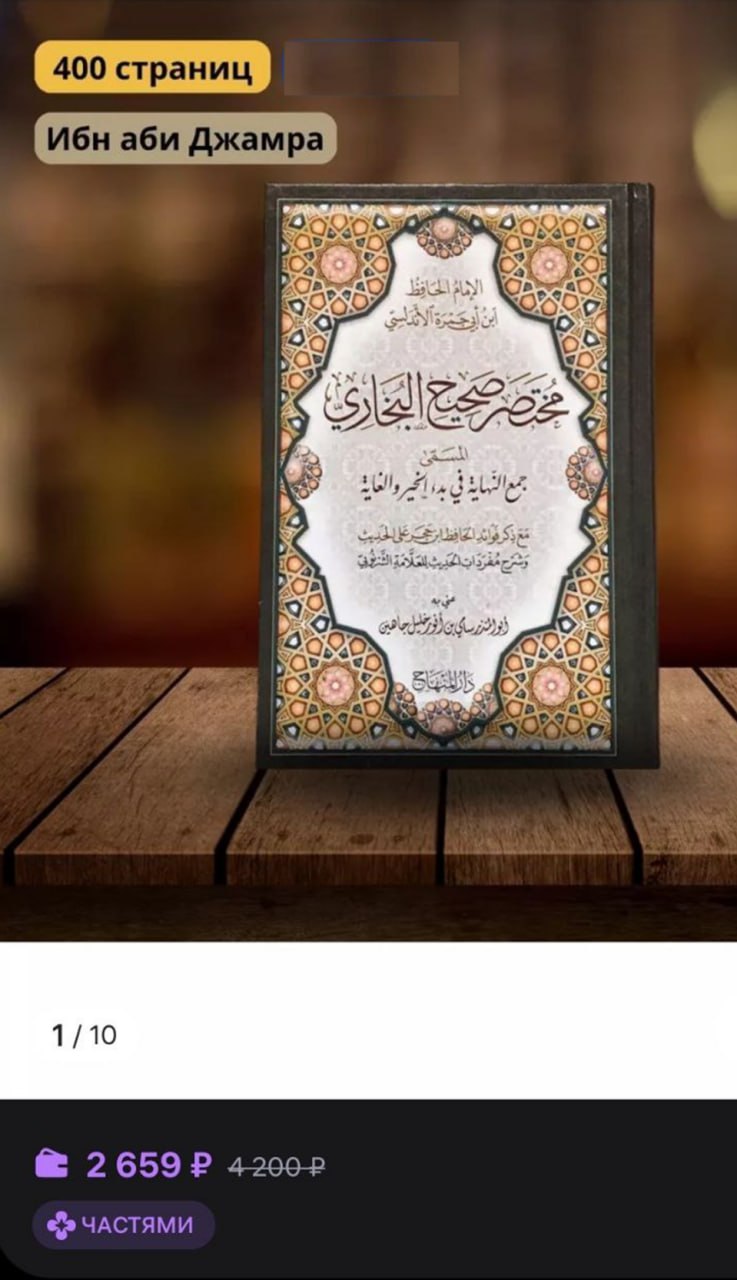 400 страниц
Ибн аби Джамра
الإمام الحافظ
ابن أبي جمرة الأندلسي
مُختصر صحيح البُخاري
المسمّى
جمع النهاية في بدء الخير والغاية
مع ذكر فوائد الحافظ ابن حجر على الحديث
وشرح مفردات الحديث للعلّامة الشرنوبي
عني به
أبو المنذر سامي بن أنور خليل جاهين
دار المنهاج
1 / 10
2 659 ₽ 4 200 ₽
ЧАСТЯМИ